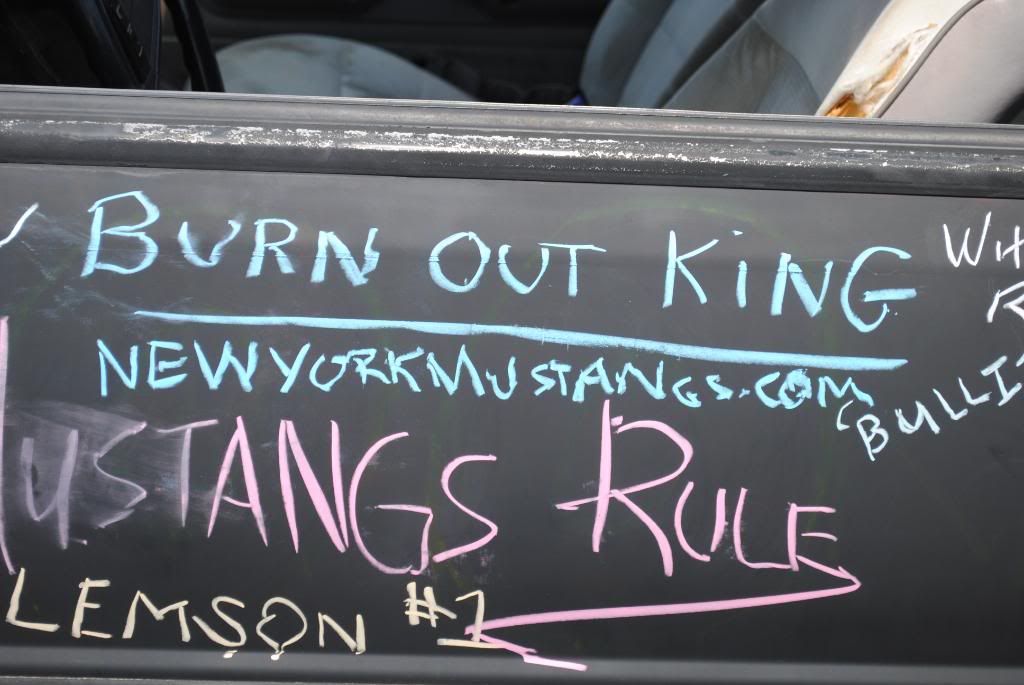 BURN OUT KING
NEWYORKMUSTANGS.COM
WH
"BULLI
MUSTANGS RULE
LEMSON #1